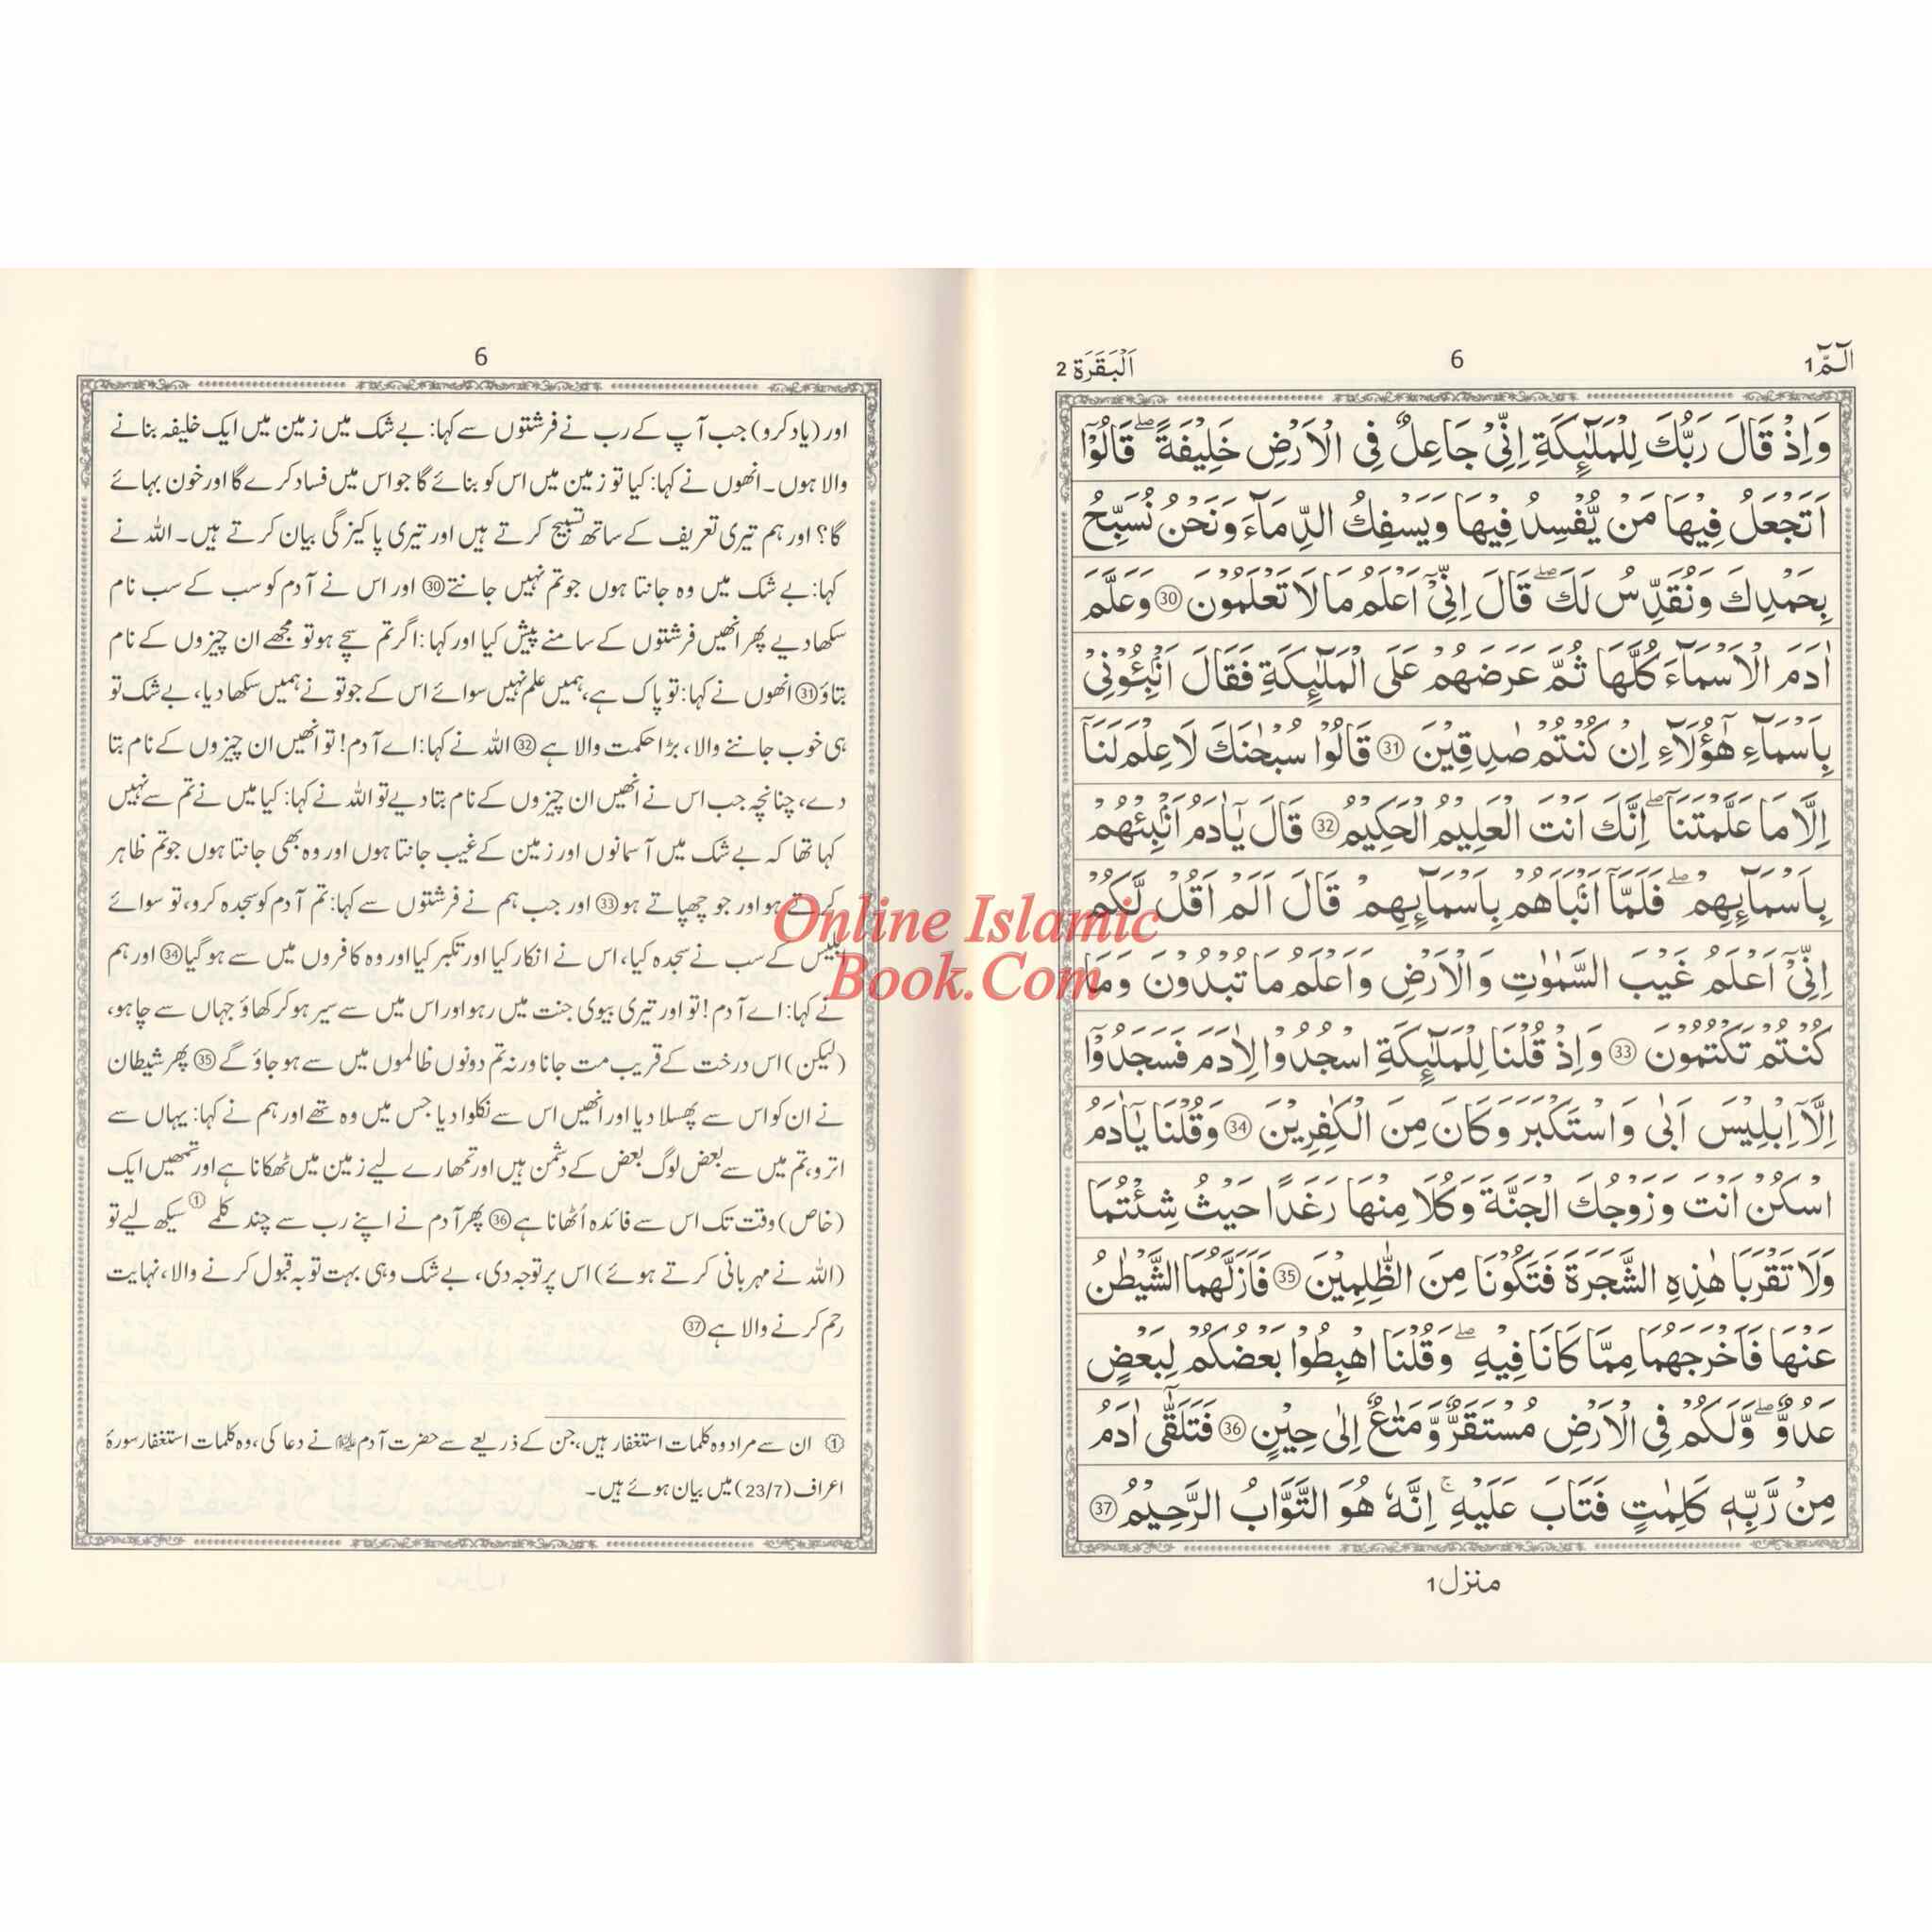 الٓمّٓ 1
6
اَلْبَقَرَة 2
وَاِذْ قَالَ رَبُّكَ لِلْمَلٰٓئِكَةِ اِنِّيْ جَاعِلٌ فِي الْاَرْضِ خَلِيْفَةً ۖ قَالُوْٓا
اَتَجْعَلُ فِيْهَا مَنْ يُّفْسِدُ فِيْهَا وَيَسْفِكُ الدِّمَآءَ وَنَحْنُ نُسَبِّحُ
بِحَمْدِكَ وَنُقَدِّسُ لَكَ ۖ قَالَ اِنِّيْٓ اَعْلَمُ مَا لَا تَعْلَمُوْنَ ㉚ وَعَلَّمَ
اٰدَمَ الْاَسْمَآءَ كُلَّهَا ثُمَّ عَرَضَهُمْ عَلَى الْمَلٰٓئِكَةِ فَقَالَ اَنْۢبِـُٔوْنِيْ
بِاَسْمَآءِ هٰٓؤُلَآءِ اِنْ كُنْتُمْ صٰدِقِيْنَ ㉛ قَالُوْا سُبْحٰنَكَ لَا عِلْمَ لَنَآ
اِلَّا مَا عَلَّمْتَنَا ۖ اِنَّكَ اَنْتَ الْعَلِيْمُ الْحَكِيْمُ ㉜ قَالَ يٰٓاٰدَمُ اَنْۢبِئْهُمْ
بِاَسْمَآئِهِمْ ۖ فَلَمَّآ اَنْۢبَاَهُمْ بِاَسْمَآئِهِمْ قَالَ اَلَمْ اَقُلْ لَّكُمْ
اِنِّيْٓ اَعْلَمُ غَيْبَ السَّمٰوٰتِ وَالْاَرْضِ وَاَعْلَمُ مَا تُبْدُوْنَ وَمَا
كُنْتُمْ تَكْتُمُوْنَ ㉝ وَاِذْ قُلْنَا لِلْمَلٰٓئِكَةِ اسْجُدُوْا لِاٰدَمَ فَسَجَدُوْٓا
اِلَّآ اِبْلِيْسَ اَبٰى وَاسْتَكْبَرَ وَكَانَ مِنَ الْكٰفِرِيْنَ ㉞ وَقُلْنَا يٰٓاٰدَمُ
اسْكُنْ اَنْتَ وَزَوْجُكَ الْجَنَّةَ وَكُلَا مِنْهَا رَغَدًا حَيْثُ شِئْتُمَا
وَلَا تَقْرَبَا هٰذِهِ الشَّجَرَةَ فَتَكُوْنَا مِنَ الظّٰلِمِيْنَ ㉟ فَاَزَلَّهُمَا الشَّيْطٰنُ
عَنْهَا فَاَخْرَجَهُمَا مِمَّا كَانَا فِيْهِ ۖ وَقُلْنَا اهْبِطُوْا بَعْضُكُمْ لِبَعْضٍ
عَدُوٌّ ۖ وَّلَكُمْ فِي الْاَرْضِ مُسْتَقَرٌّ وَّمَتَاعٌ اِلٰى حِيْنٍ ㊱ فَتَلَقّٰٓى اٰدَمُ
مِنْ رَّبِّهٖ كَلِمٰتٍ فَتَابَ عَلَيْهِ ۚ اِنَّهٗ هُوَ التَّوَّابُ الرَّحِيْمُ ㊲
منزل 1
6
اور (یاد کرو) جب آپ کے رب نے فرشتوں سے کہا: بے شک میں زمین میں ایک خلیفہ بنانے
والا ہوں۔ انھوں نے کہا: کیا تو زمین میں اس کو بنائے گا جو اس میں فساد کرے گا اور خون بہائے
گا؟ اور ہم تیری تعریف کے ساتھ تسبیح کرتے ہیں اور تیری پاکیزگی بیان کرتے ہیں۔ اللہ نے
کہا: بے شک میں وہ جانتا ہوں جو تم نہیں جانتے ㉚ اور اس نے آدم کو سب کے سب نام
سکھا دیے پھر انھیں فرشتوں کے سامنے پیش کیا اور کہا: اگر تم سچے ہو تو مجھے ان چیزوں کے نام
بتاؤ ㉛ انھوں نے کہا: تو پاک ہے، ہمیں علم نہیں سوائے اس کے جو تو نے ہمیں سکھا دیا، بے شک تو
ہی خوب جاننے والا، بڑا حکمت والا ہے ㉜ اللہ نے کہا: اے آدم! تو انھیں ان چیزوں کے نام بتا
دے، چنانچہ جب اس نے انھیں ان چیزوں کے نام بتا دیے تو اللہ نے کہا: کیا میں نے تم سے نہیں
کہا تھا کہ بے شک میں آسمانوں اور زمین کے غیب جانتا ہوں اور وہ بھی جانتا ہوں جو تم ظاہر
کرتے ہو اور جو چھپاتے ہو ㉝ اور جب ہم نے فرشتوں سے کہا: تم آدم کو سجدہ کرو، تو سوائے
ابلیس کے سب نے سجدہ کیا، اس نے انکار کیا اور تکبر کیا اور وہ کافروں میں سے ہو گیا ㉞ اور ہم
نے کہا: اے آدم! تو اور تیری بیوی جنت میں رہو اور اس میں سے سیر ہو کر کھاؤ جہاں سے چاہو،
(لیکن) اس درخت کے قریب مت جانا ورنہ تم دونوں ظالموں میں سے ہو جاؤ گے ㉟ پھر شیطان
نے ان کو اس سے پھسلا دیا اور انھیں اس سے نکلوا دیا جس میں وہ تھے اور ہم نے کہا: یہاں سے
اترو، تم میں سے بعض لوگ بعض کے دشمن ہیں اور تمھارے لیے زمین میں ٹھکانا ہے اور تمھیں ایک
(خاص) وقت تک اس سے فائدہ اُٹھانا ہے ㊱ پھر آدم نے اپنے رب سے چند کلمے ① سیکھ لیے تو
(اللہ نے مہربانی کرتے ہوئے) اس پر توجہ دی، بے شک وہی بہت توبہ قبول کرنے والا، نہایت
رحم کرنے والا ہے ㊲
① ان سے مراد وہ کلمات استغفار ہیں، جن کے ذریعے سے حضرت آدم علیہ السلام نے دعا کی، وہ کلمات استغفار سورۂ
اعراف (23/7) میں بیان ہوئے ہیں۔
Online Islamic
Book.Com